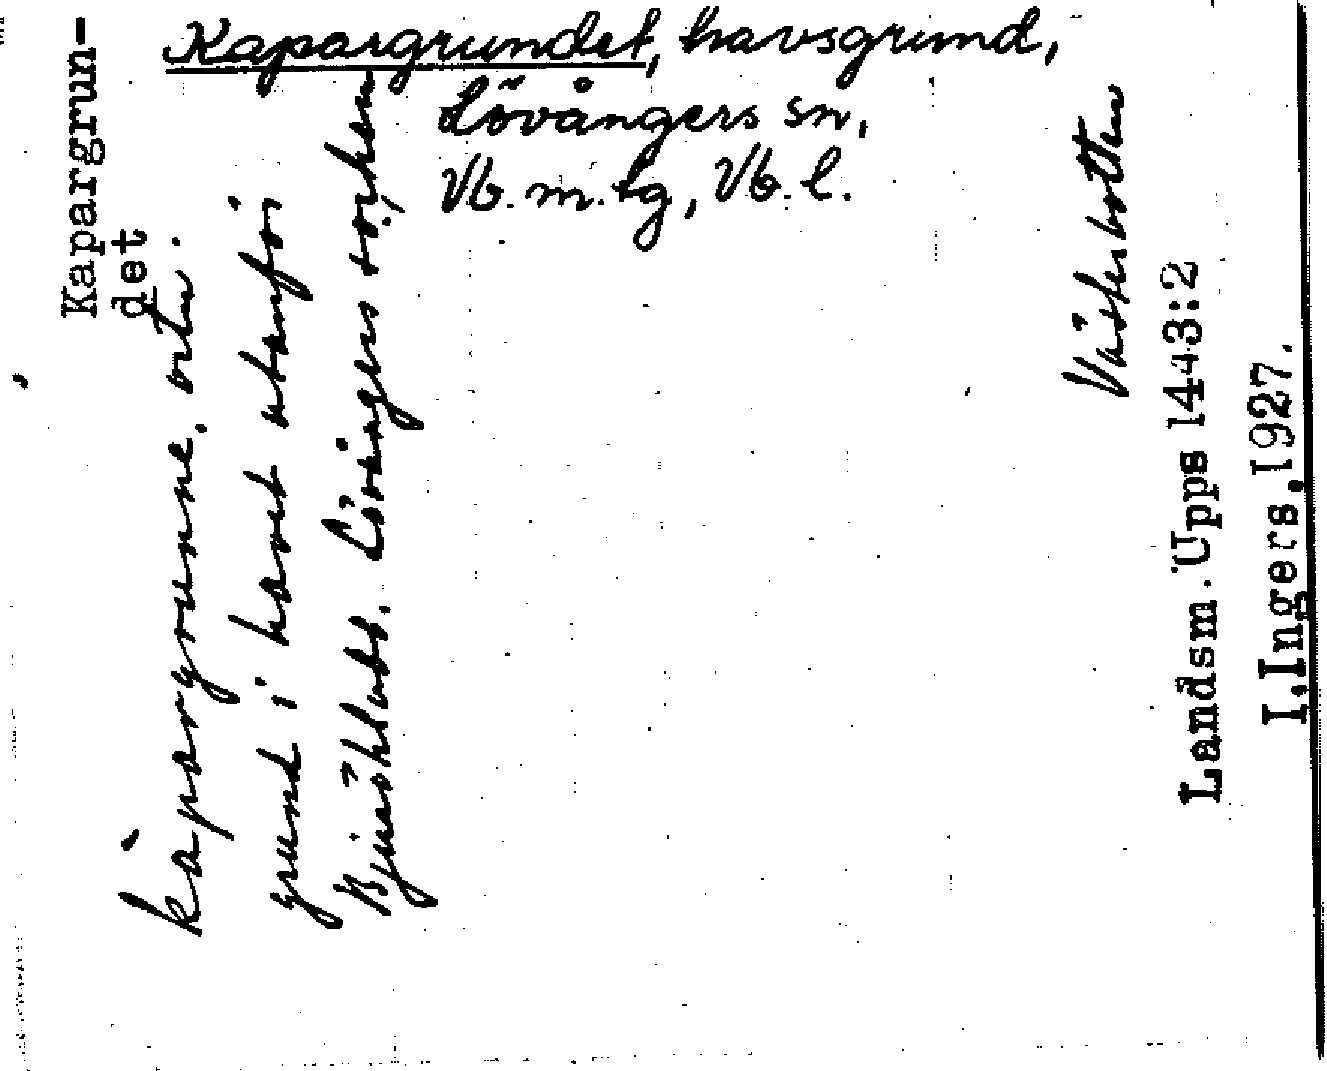 Kapargrundet, havsgrund,
Lövångers sn,
Vb. m. tg, Vb. l.
Kapargrun-
det
kàpargrunne, ortn.
grund i havet utanför
Bjuröklubb. Lövångers
Västerbotten
Landsm. Upps 1443:2
I. Ingers, 1927.